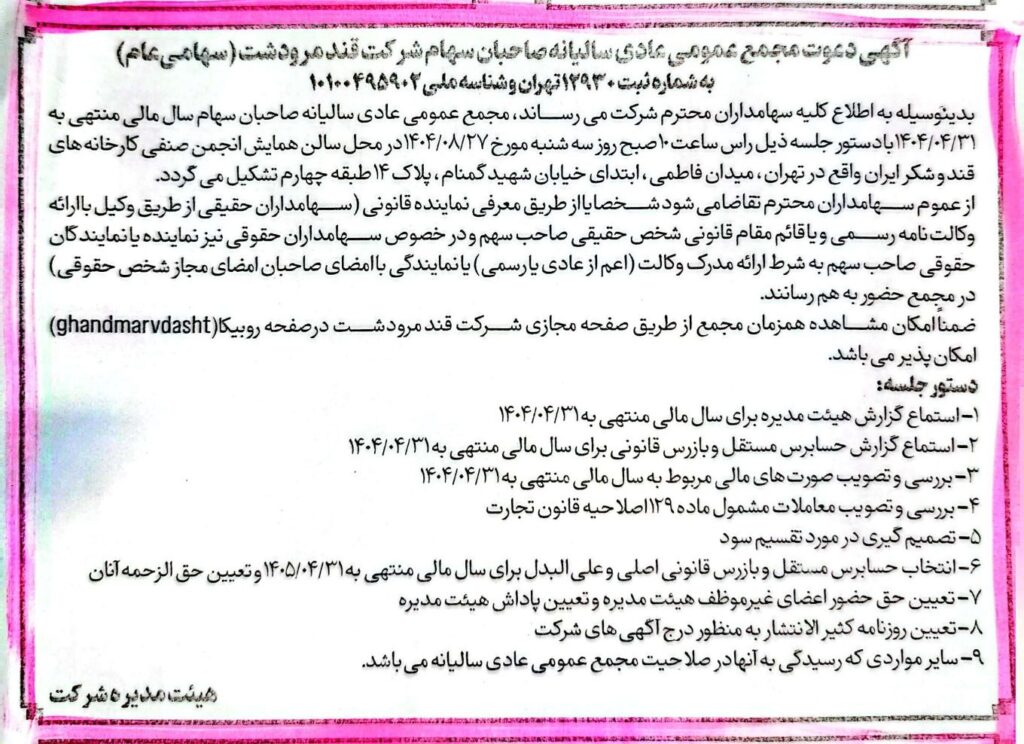 آگهی دعوت مجمع عمومی عادی سالیانه صاحبان سهام شرکت قند مرودشت (سهامی عام)
به شماره ثبت ۱۲۹۳۰ تهران و شناسه ملی ۱۰۱۰۰۴۹۵۹۰۲
بدینوسیله به اطلاع کلیه سهامداران محترم شرکت می رساند، مجمع عمومی عادی سالیانه صاحبان سهام سال مالی منتهی به
۱۴۰۴/۰۴/۳۱ با دستور جلسه ذیل راس ساعت ۱۰ صبح روز سه شنبه مورخ ۱۴۰۴/۰۸/۲۷ در محل سالن همایش انجمن صنفی کارخانه های
قند و شکر ایران واقع در تهران ، میدان فاطمی ، ابتدای خیابان شهید گمنام ، پلاک ۱۴ طبقه چهارم تشکیل می گردد.
از عموم سهامداران محترم تقاضا می شود شخصا یا از طریق معرفی نماینده قانونی (سهامداران حقیقی از طریق وکیل با ارائه
وکالت نامه رسمی و یا قائم مقام قانونی شخص حقیقی صاحب سهم و در خصوص سهامداران حقوقی نیز نماینده یا نمایندگان
حقوقی صاحب سهم به شرط ارائه مدرک وکالت (اعم از عادی یا رسمی) یا نمایندگی با امضای صاحبان امضای مجاز شخص حقوقی)
در مجمع حضور به هم رسانند.
ضمناً امکان مشاهده همزمان مجمع از طریق صفحه مجازی شرکت قند مرودشت در صفحه روبیکا (ghandmarvdasht)
امکان پذیر می باشد.
دستور جلسه:
۱- استماع گزارش هیئت مدیره برای سال مالی منتهی به ۱۴۰۴/۰۴/۳۱
۲- استماع گزارش حسابرس مستقل و بازرس قانونی برای سال مالی منتهی به ۱۴۰۴/۰۴/۳۱
۳- بررسی و تصویب صورت های مالی مربوط به سال مالی منتهی به ۱۴۰۴/۰۴/۳۱
۴- بررسی و تصویب معاملات مشمول ماده ۱۲۹ اصلاحیه قانون تجارت
۵- تصمیم گیری در مورد تقسیم سود
۶- انتخاب حسابرس مستقل و بازرس قانونی اصلی و علی البدل برای سال مالی منتهی به ۱۴۰۵/۰۴/۳۱ و تعیین حق الزحمه آنان
۷- تعیین حق حضور اعضای غیر موظف هیئت مدیره و تعیین پاداش هیئت مدیره
۸- تعیین روزنامه کثیر الانتشار به منظور درج آگهی های شرکت
۹- سایر مواردی که رسیدگی به آنها در صلاحیت مجمع عمومی عادی سالیانه می باشد.
هیئت مدیره شرکت